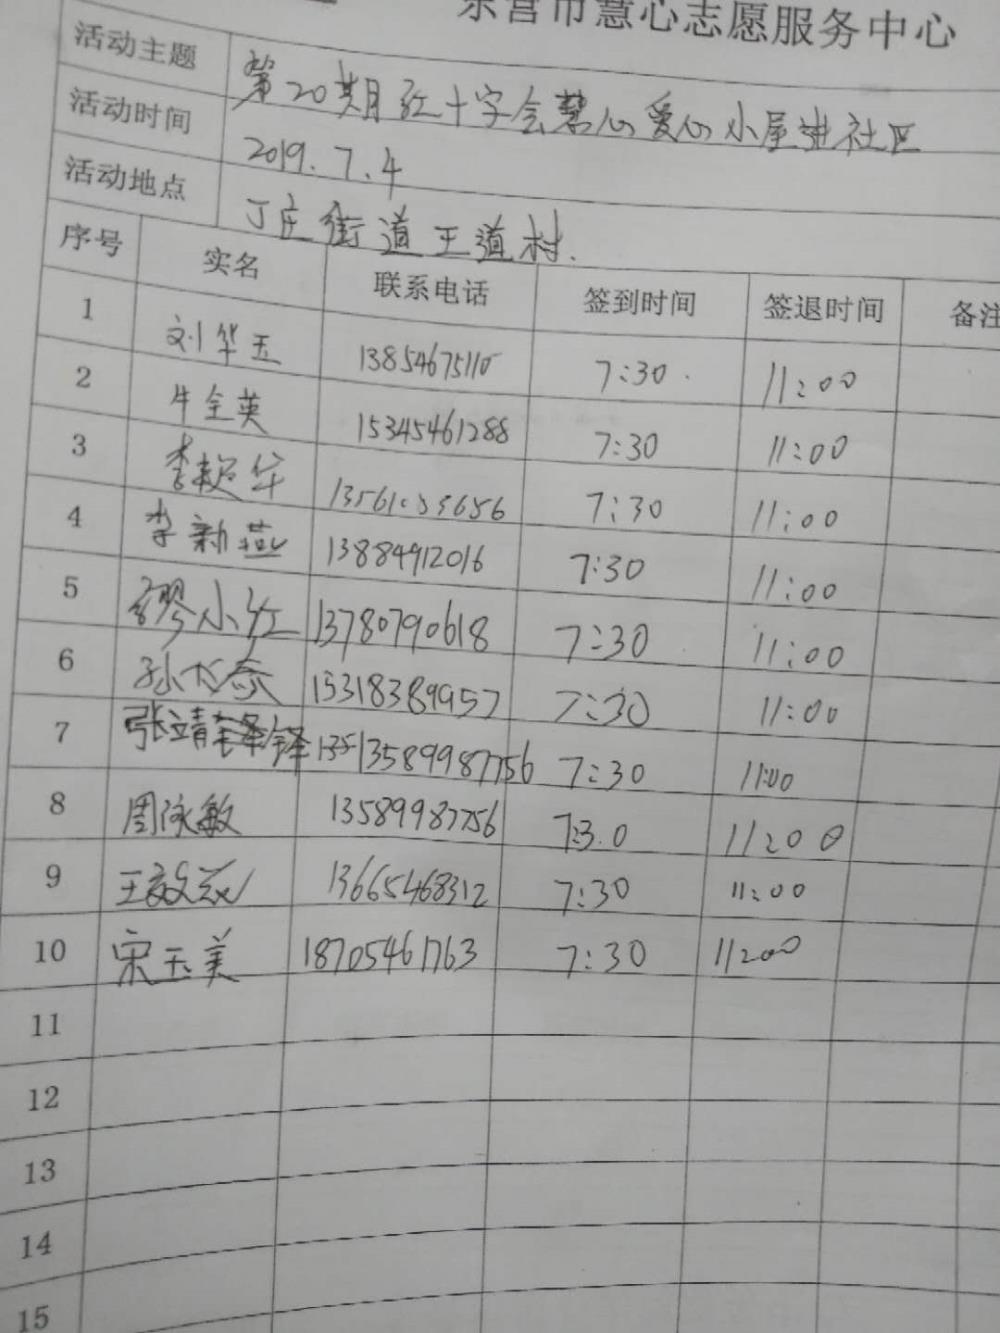 东营市慧心志愿服务中心
活动主题 第20期红十字会慧心爱心小屋进社区
活动时间 2019.7.4
活动地点 丁庄街道王道村.
序号 实名 联系电话 签到时间 签退时间 备注
1 刘华玉 13854675110 7:30 11:00
2 牛全英 15345461288 7:30 11:00
3 李 华 7:30 11:00
4 李新燕 13884912016 7:30 11:00
5 缪小红 13780790618 7:30 11:00
6 孙 15318389957 7:30 11:00
7 张靖 13589987756 7:30 11:00
8 周咏敏 13589987756 7:3.0 11:00
9 王 13665468312 7:30 11:00
10 宋玉美 18705461763 7:30 11:00
11
12
13
14
15